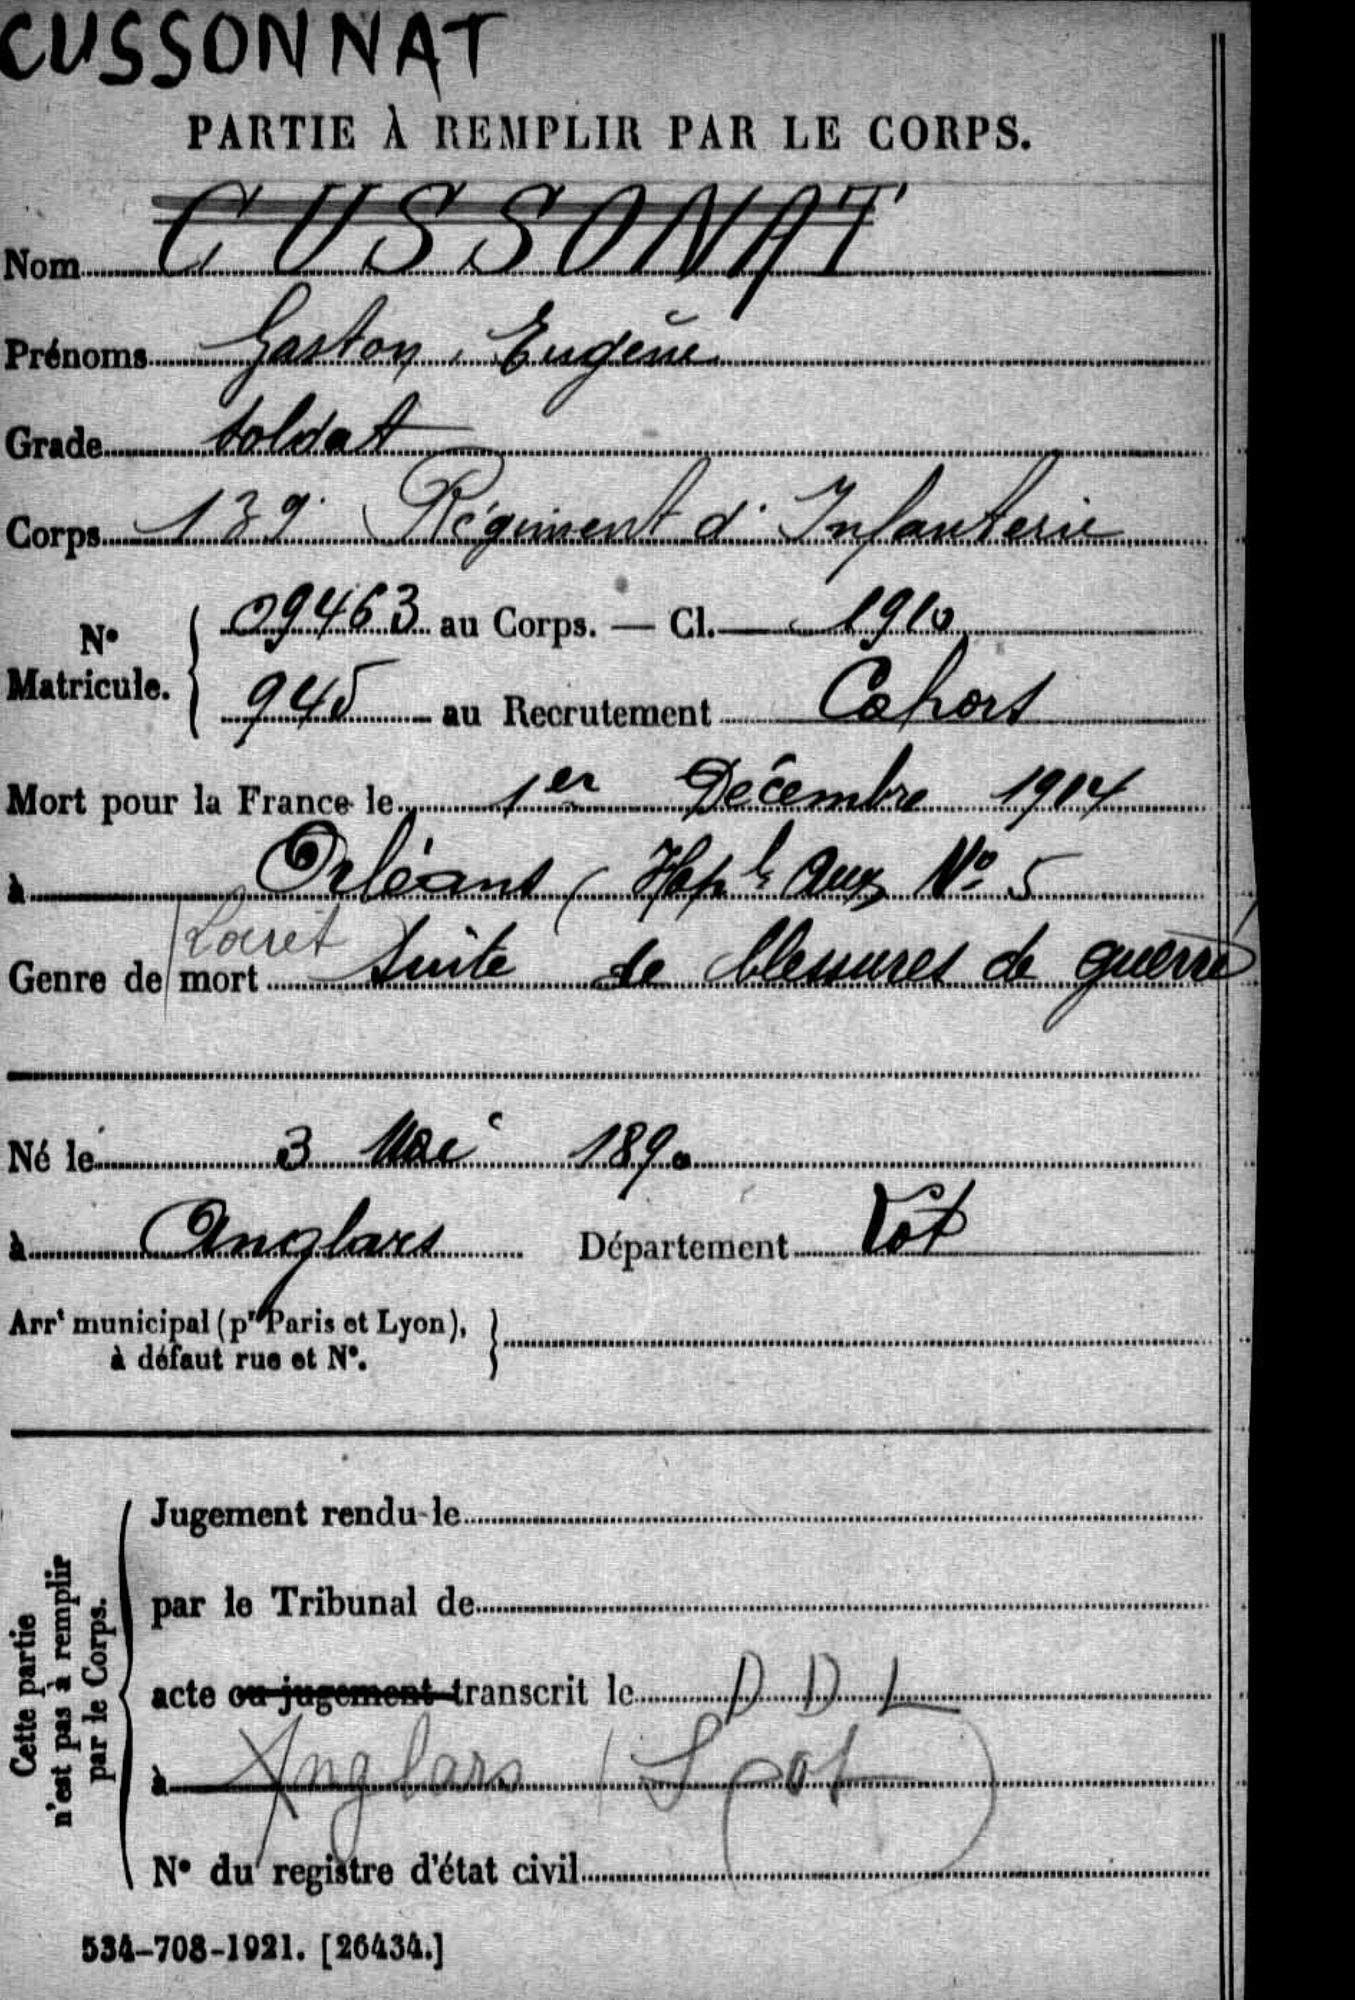 CUSSONNAT
PARTIE À REMPLIR PAR LE CORPS.
Nom CUSSONAT
Prénoms Gaston, Eugène
Grade soldat
Corps 139e Régiment d'Infanterie
N° Matricule. { 09463 au Corps. — Cl. 1910
945 au Recrutement Cahors
Mort pour la France le 1er Décembre 1914
à Orléans (Hopl Aux N° 5
Loiret
Genre de mort suite de blessures de guerre
Né le 3 Mai 1890
à Anglars Département Lot
Arrt municipal (pr Paris et Lyon),
à défaut rue et N°.
Cette partie
n'est pas à remplir
par le Corps.
Jugement rendu le
par le Tribunal de
acte ou jugement transcrit le D D L
à Anglars (Lot)
N° du registre d'état civil
534-708-1921. [26434.]